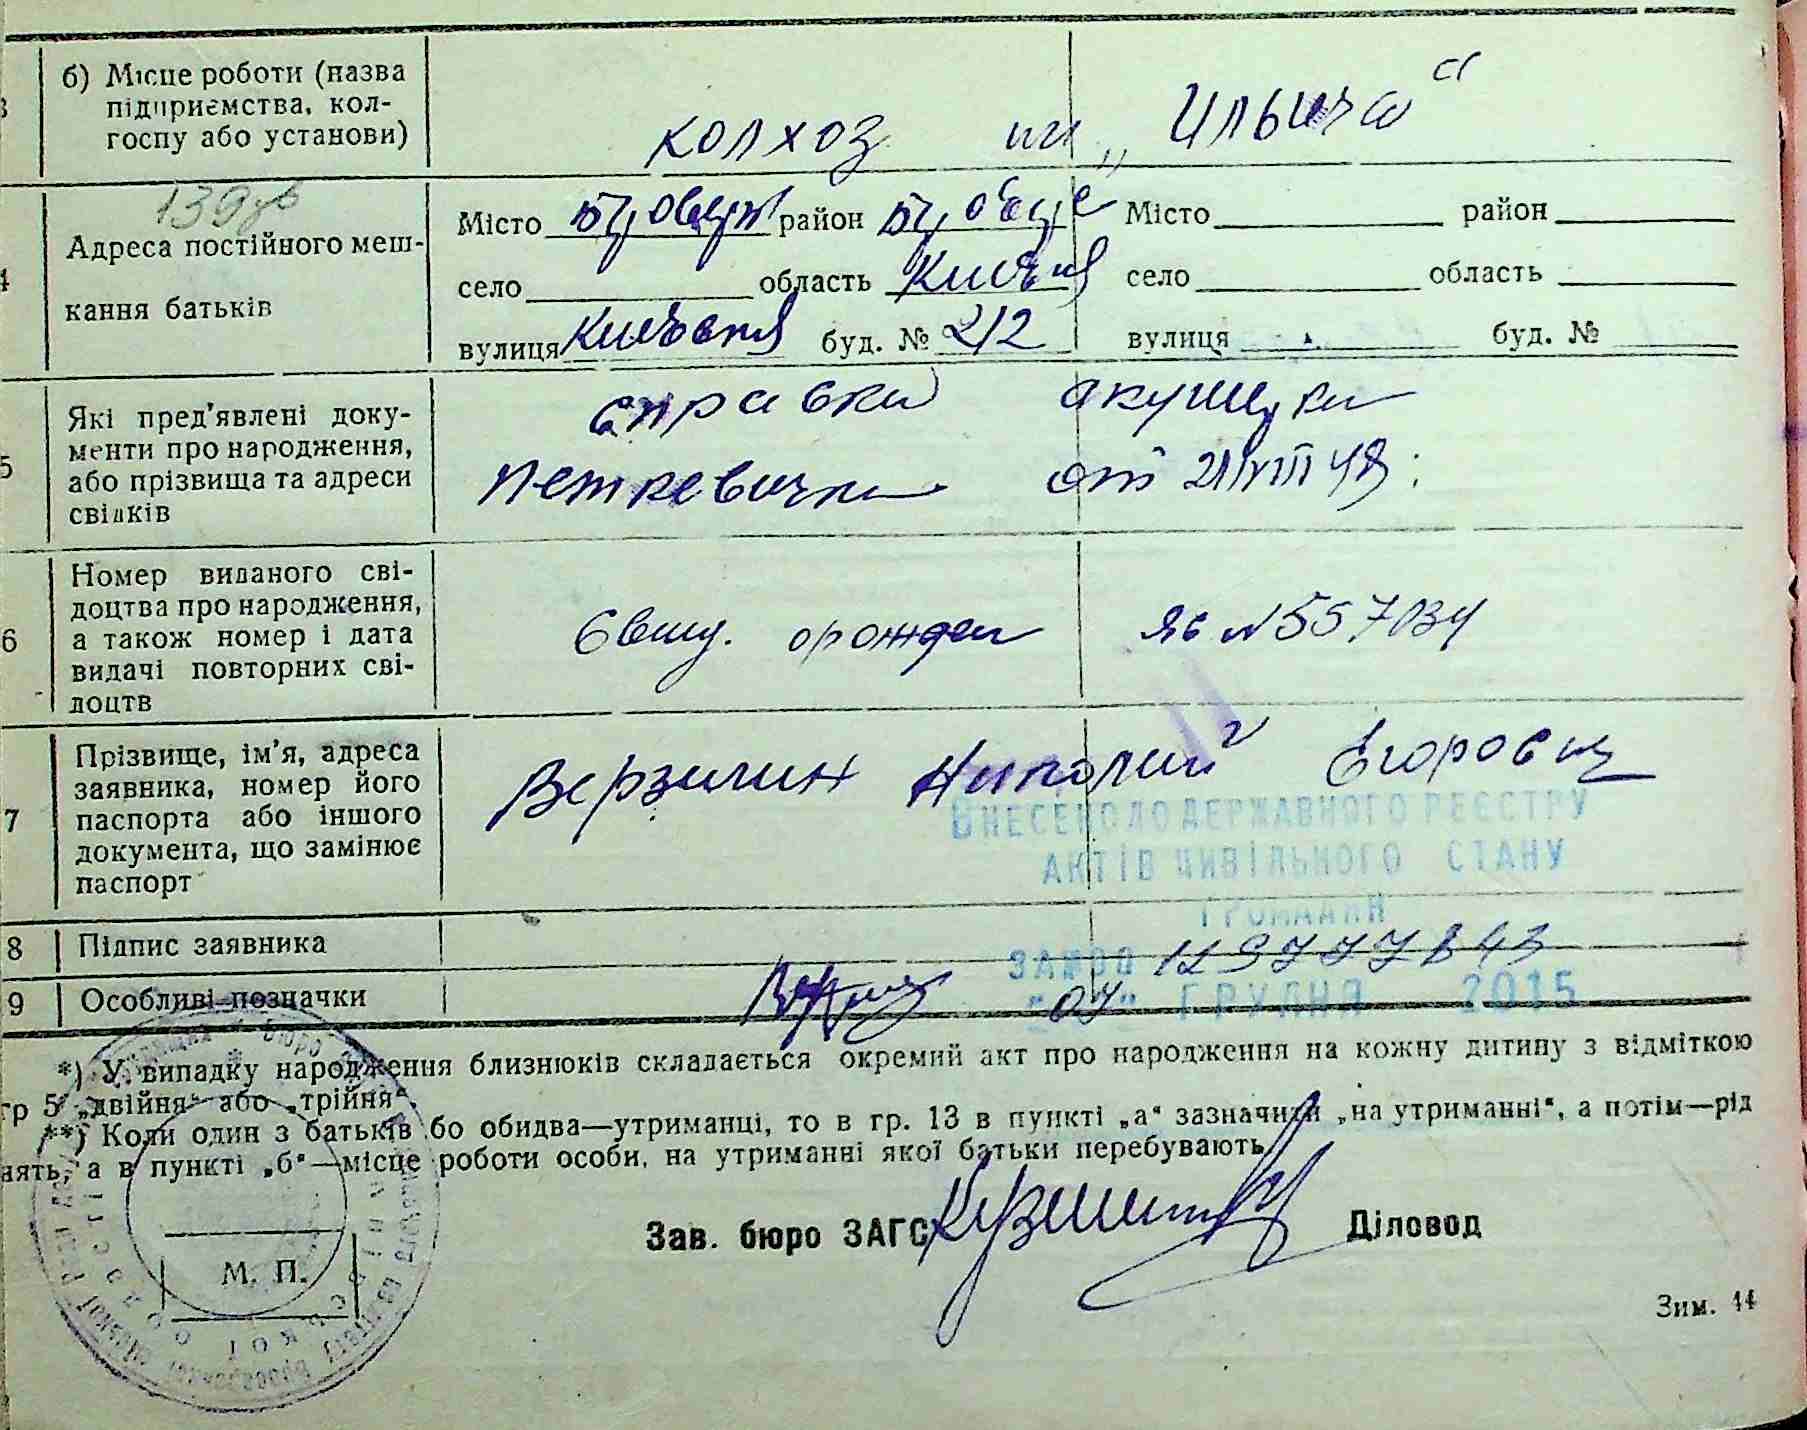 б) Місце роботи (назва
підприємства, кол-
госпу або установи)
колхоз им „Ильича“
139
Адреса постійного меш-
кання батьків
Місто район Місто район
село область село область
вулиця Киевская буд. № 212 вулиця буд. №
5 Які пред'явлені доку-
менти про народження,
або прізвища та адреси
свідків
справка акушерки
Петкевички от 21/VIII 48
6 Номер виданого сві-
доцтва про народження,
а також номер і дата
видачі повторних сві-
доцтв
№ 557034
7 Прізвище, ім'я, адреса
заявника, номер його
паспорта або іншого
документа, що замінює
паспорт
Николай Егорович
ВНЕСЕНО ДО ДЕРЖАВНОГО РЕЄСТРУ
АКТІВ ЦИВІЛЬНОГО СТАНУ
ГРОМАДЯН
8 Підпис заявника
9 Особливі позначки
„07“ ГРУДНЯ 2015
*) У випадку народження близнюків складається окремий акт про народження на кожну дитину з відміткою
гр 5 „двійня“ або „трійня“.
**) Коли один з батьків бо обидва—утриманці, то в гр. 13 в пункті „а“ зазначити „на утриманні“, а потім—рід
нять, а в пункті „б“—місце роботи особи, на утриманні якої батьки перебувають.
Зав. бюро ЗАГС Діловод
М. П.
Зим. 44